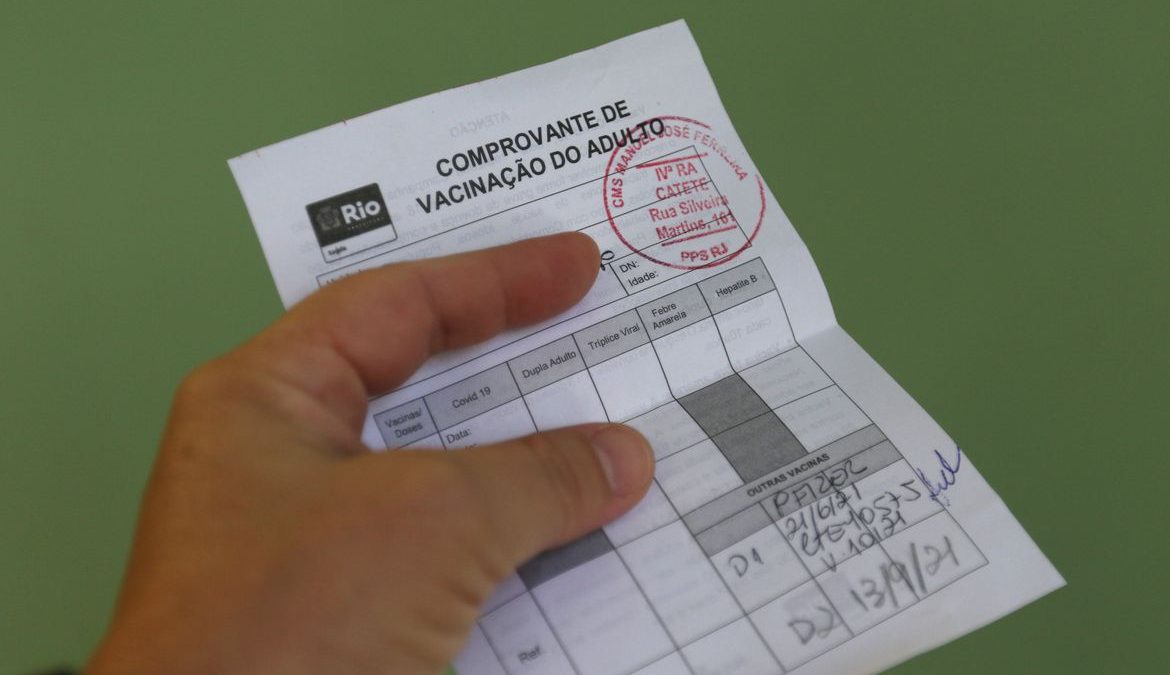 COMPROVANTE DE
VACINAÇÃO DO ADULTO
Rio
PREFEITURA
Saúde
CMS MANOEL JOSÉ FERREIRA
IVª RA
CATETE
Rua Silveira
Martins, 161
PPS RJ
DN:
Idade:
Vacinas/
Doses
Covid 19
Dupla Adulto
Tríplice Viral
Febre
Amarela
Hepatite B
Data:
OUTRAS VACINAS
D1
PFIZER
21/6/21
V-10/21
D2
13/9/21
Ref.